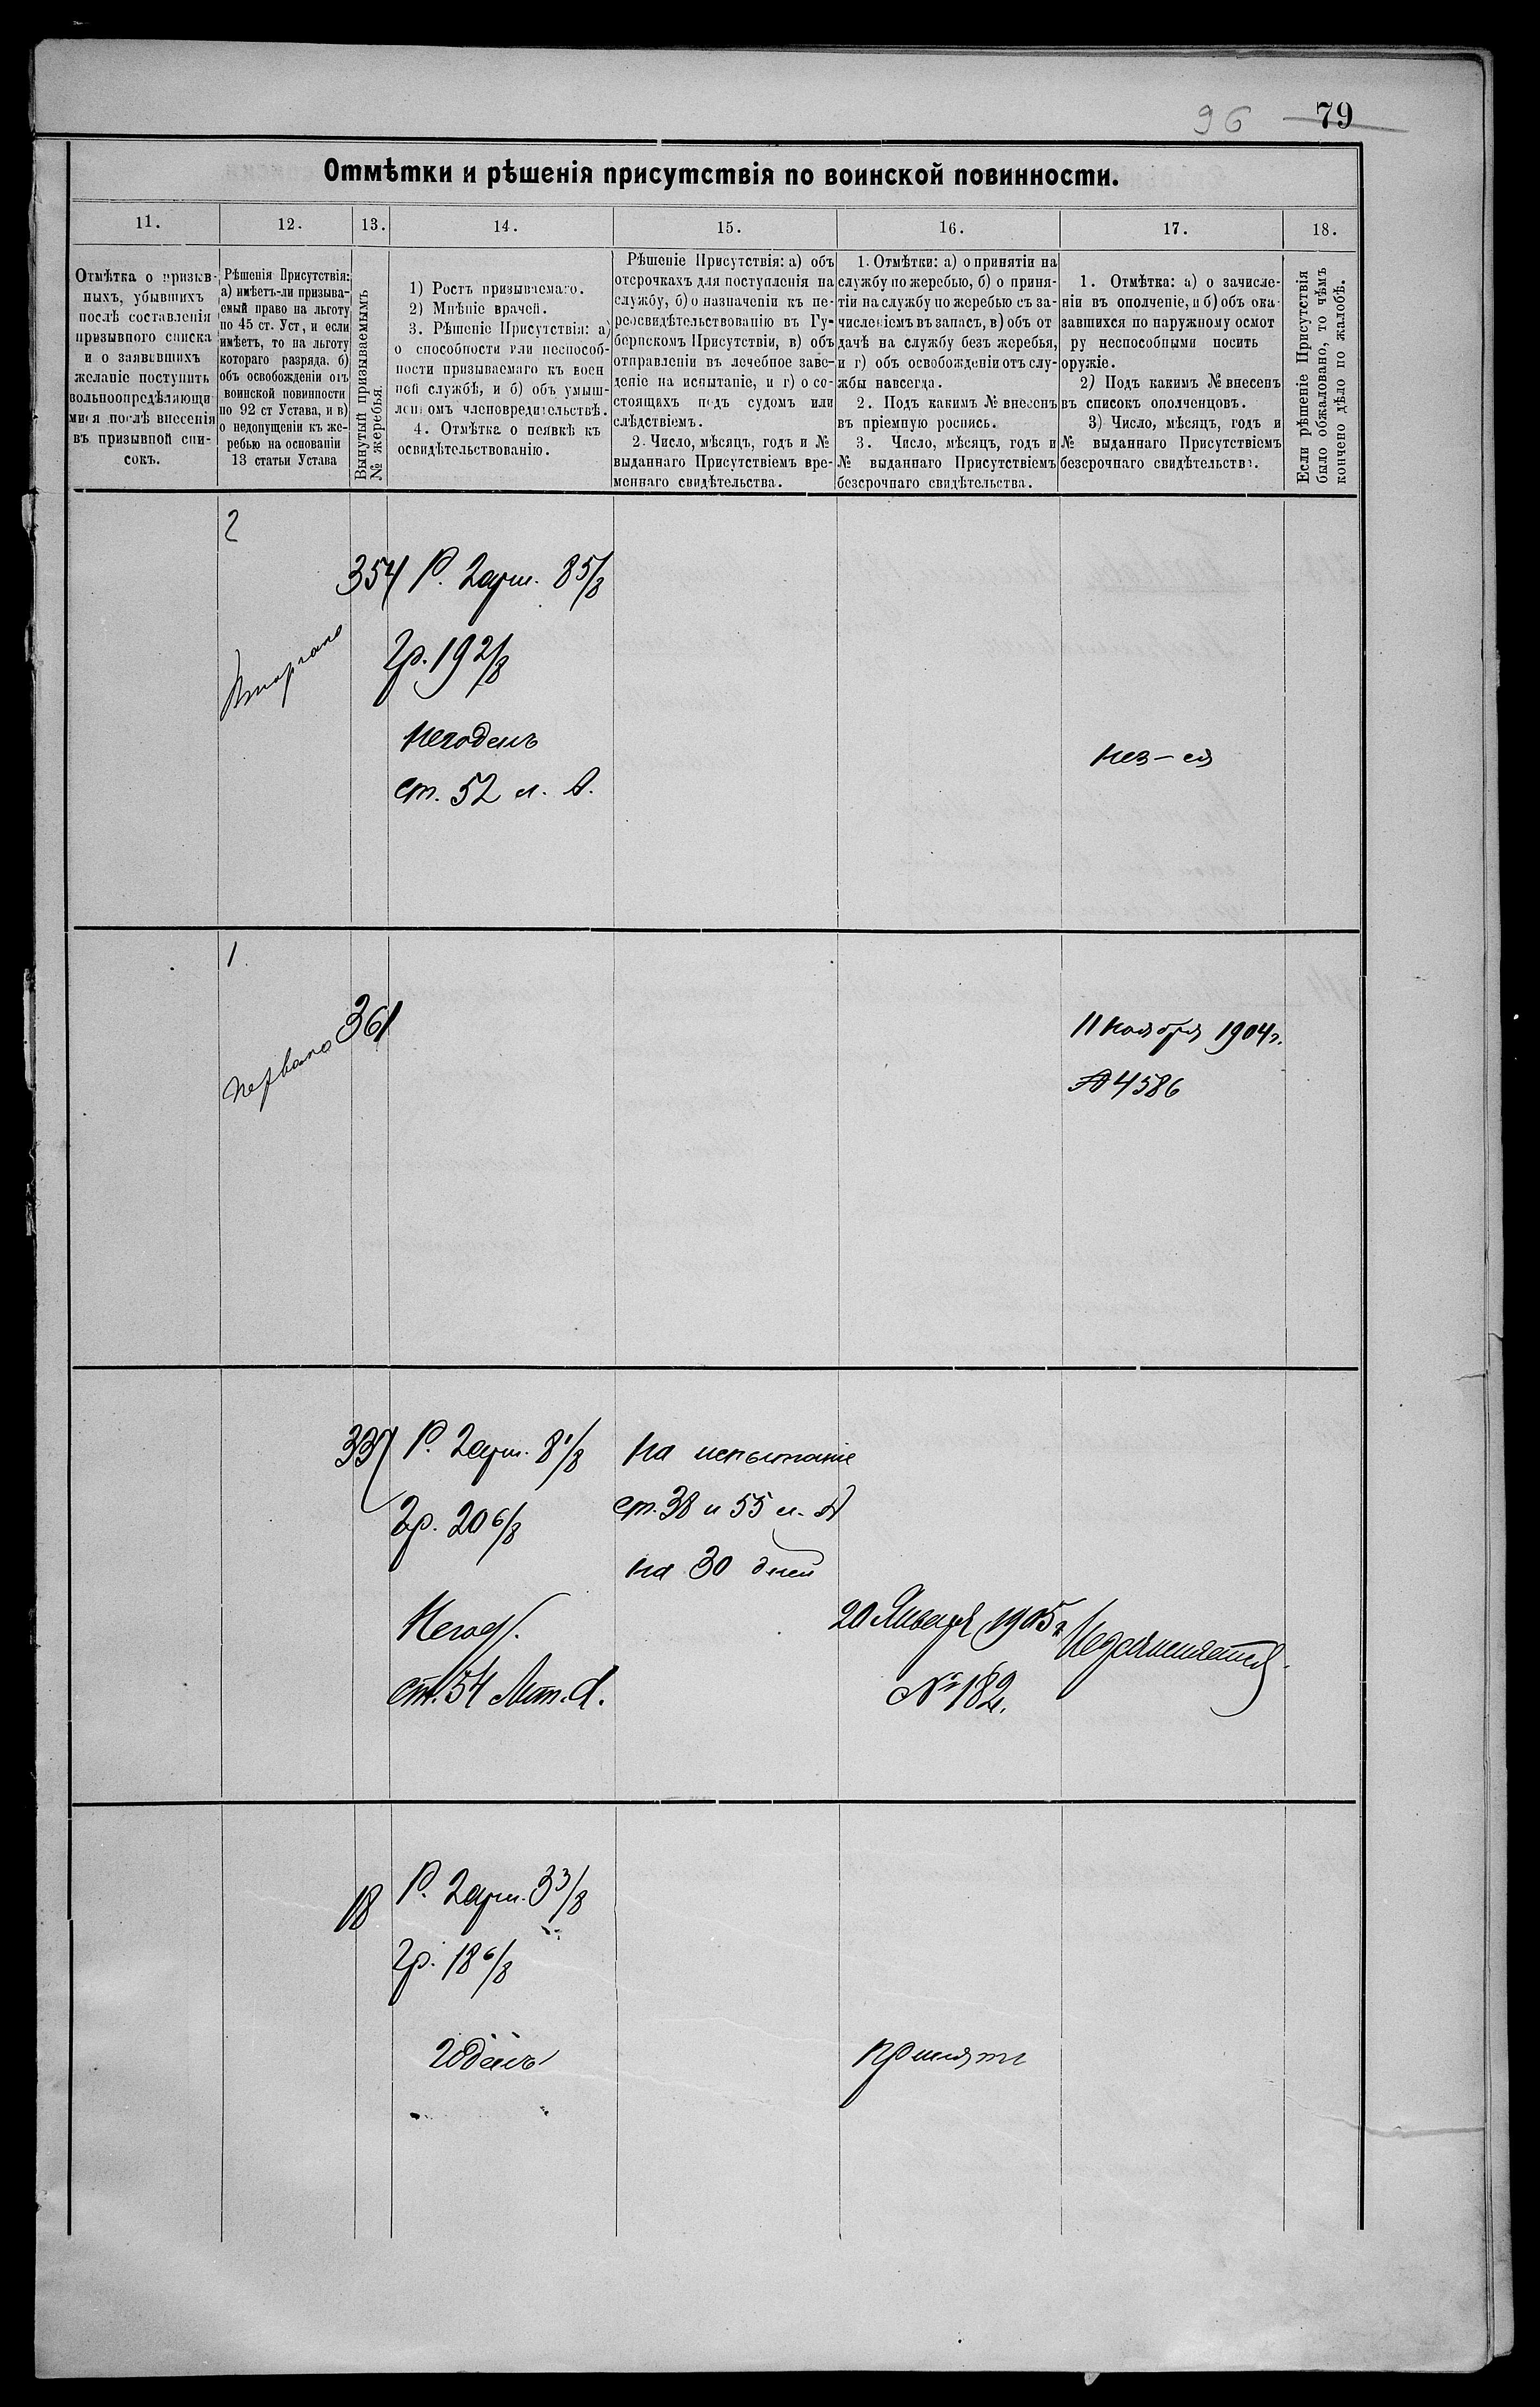 96 79
Отмѣтки и рѣшенія присутствія по воинской повинности.
11. 12. 13. 14. 15. 16. 17. 18.
Отмѣтка о призыв-
ныхъ, убывшихъ
послѣ составленія
призывного списка
и о заявившихъ
желаніе поступить
вольноопредѣляющи
мися послѣ внесенія
въ призывной спи-
сокъ.
Рѣшенія Присутствія:
а) имѣетъ-ли призыва-
емый право на льготу
по 45 ст. Уст, и если
имѣетъ, то на льготу
котораго разряда. б)
объ освобожденіи отъ
воинской повинности
по 92 ст Устава, и в)
о недопущеніи къ же-
ребью на основаніи
13 статьи Устава
Вынутый призываемымъ
№ жеребья.
1) Ростъ призываемаго.
2) Мнѣніе врачей.
3. Рѣшеніе Присутствія: а)
о способности или неспособ-
ности призываемаго къ воен
ной службѣ, и б) объ умыш-
ленномъ членовредительствѣ.
4. Отмѣтка о неявкѣ къ
освидѣтельствованію.
Рѣшеніе Присутствія: а) объ
отсрочкахъ для поступленія на
службу, б) о назначеніи къ пе-
реосвидѣтельствованію въ Гу-
бернскомъ Присутствіи, в) объ
отправленіи въ лечебное заве-
деніе на испытаніе, и г) о со-
стоящихъ подъ судомъ или
слѣдствіемъ.
2. Число, мѣсяцъ, годъ и №
выданнаго Присутствіемъ вре-
меннаго свидѣтельства.
1. Отмѣтки: а) о принятіи на
службу по жеребью, б) о приня-
тіи на службу по жеребью съ за-
численіемъ въ запасъ, в) объ от
дачѣ на службу безъ жеребья,
и г) объ освобожденіи отъ слу-
жбы навсегда.
2. Подъ какимъ № внесенъ
въ пріемную роспись.
3. Число, мѣсяцъ, годъ и
№ выданнаго Присутствіемъ
безсрочнаго свидѣтельства.
1. Отмѣтка: а) о зачисле-
ніи въ ополченіе, и б) объ ока-
завшихся по наружному осмот
ру неспособными носить
оружіе.
2) Подъ какимъ № внесенъ
въ списокъ ополченцовъ.
3) Число, мѣсяцъ, годъ и
№ выданнаго Присутствіемъ
безсрочнаго свидѣтельства.
Если рѣшеніе Присутствія
было обжаловано, то чѣмъ
кончено дѣло по жалобѣ.
2
354 Р. 2 арш. 8 5/8
Втораго
Гр. 19 2/8
Негоденъ
ст. 52 л. А.
нез-ся
1
361
Перваго
11 Ноября 1904 г.
№ 4586
337 Р. 2 арш. 8 1/8
Гр. 20 6/8
Негод.
ст. 54 Лит. А.
На испытаніе
ст. 38 и 55 л. А
на 30 дней
20 Января 1905 г.
№ 182.
Незачисляется.
18 Р. 2 арш. 3 3/8
Гр. 18 6/8
Годенъ
Принятъ